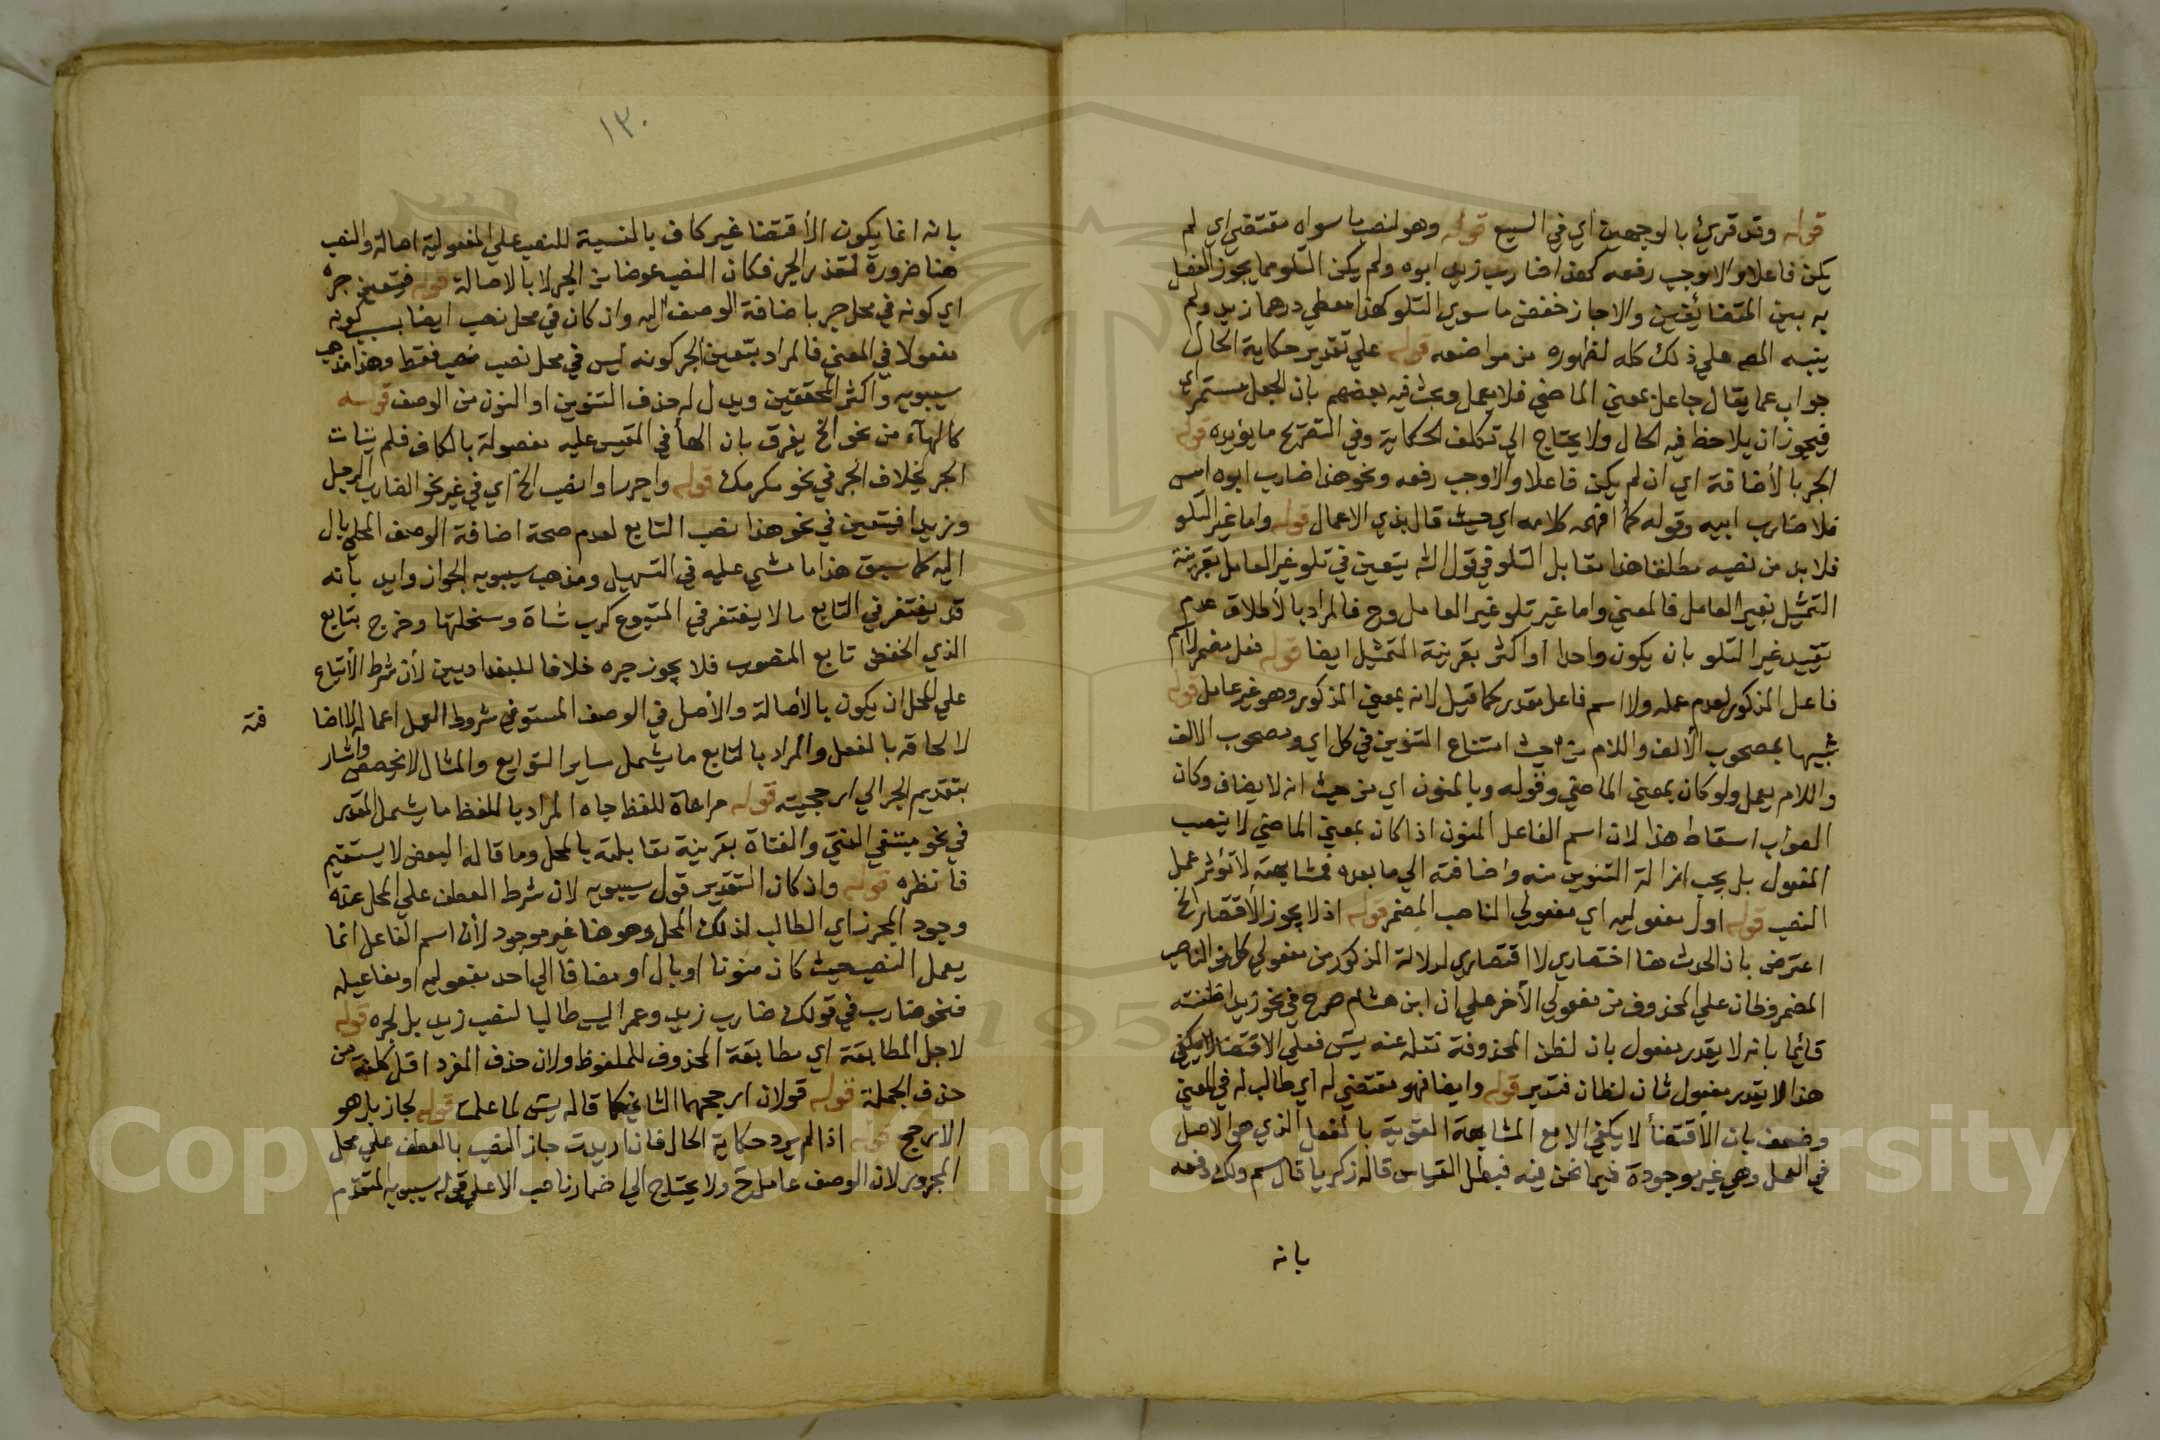 قوله وقد قرئ بالوجهين اي في السبع قوله وهو لنصب ما سواه مقتضي اي لم
يكن فاعلا والا وجب رفعه كهذا ضارب زيد ابوه ولم يكن التلو مما يجوز الفصل
به بين المتضائفين والا جاز خفض ما سوي التلو كهذا معطي درهما زيد ولم
ينبه المص علي ذلك كله لظهوره من مواضعه قوله علي تقدير حكاية الحال
جواب عما يقال جاعل بمعني الماضي فلا يعمل وبحث فيه بعضهم بان الجعل مستمر اي
فيجوز ان يلاحظ فيه الحال ولا يحتاج الي تكلف الحكاية وفي التصريح ما يؤيده قوله
الجر بالأضافة اي ان لم يكن فاعلا والا وجب رفعه ونحو هذا ضارب ابوه امس
فلا ضارب ابيه وقوله كما افهمه كلامه اي حيث قال بذي الاعمال قوله واما غير التلو
فلا بد من نصبه مطلقا هذا مقابل التلو في قول الش يتعين في تلو غير العامل بقرينة
التمثيل بغير العامل فالمعني واما غير تلو غير العامل وح فالمراد بالأطلاق عدم
تقييد غير التلو بان يكون واحدا أو اكثر بقرينة التمثيل ايضا قوله فعل مضمر لا اسم
فاعل المذكور لعدم عمله ولا اسم فاعل مقدر كما قيل لانه بمعني المذكور وهو غير عامل قوله
شبيها بمصحوب الألف واللام من حيث امتناع التنوين في كل اي ومصحوب الالف
واللام يعمل ولو كان بمعني الماضي وقوله وبالمنون اي من حيث انه لا يضاف وكان
الصواب اسقاط هذا لان اسم الفاعل المنون اذا كان بمعني الماضي لا ينصب
المفعول بل يجب ازالة التنوين منه واضافته الي ما بعده فمشابهته لا تؤثر عمل
النصب قوله اول مفعوليه اي مفعولي الناصب المضمر قوله اذ لا يجوز الأقتصار الخ
اعترض بان الحدث هنا اختصاري لا اقتصاري لدلالة المذكور من مفعولي كل من الناصب
المضمر وظان علي المحذوف من مفعولي الأخر علي ان ابن هشام صرح في نحو زيدا ظننته
قائما بانه لا يقدر مفعول بان لظن المحذوفة نقله عنه يس فعلي الاقتضا لا يكفي
هذا الا يقدر مفعول ثان لظان فتدبر قوله وايضا فهو مقتضي له اي طالب له في المعني
وضعف بان الأقتضأ لا يكفي الا مع المشابهة القوية بالفعل الذي هو الاصل
في العمل وهي غير موجودة فيما نحن فيه فبطل القياس قاله زكريا قال سم ولك دفعه
بانه
١٣٠
بانه انما يكون الأقتضا غير كاف بالنسبة للنصب علي المفعولية اصالة والنصب
هنا ضرورة لتعذر الجر فكان النصب عوضا من الجر لا بالاصالة قوله فيتعين جره
اي كونه في محل جر باضافة الوصف اليه وان كان في محل نصب ايضا بسبب كونه
مفعولا في المعني فالمراد بتعين الجر كونه ليس في محل نصب فقط وهذا مذهب
سيبويه واكثر المحققين ويدل له حذف التنوين او النون من الوصف قوله
كالهآء من نحو الخ يفرق بان الهأ في المقيس عليه مفصولة بالكاف فلم يتات
الجر بخلاف الجر في نحو مكرمك قوله واجرر او انصب الخ اي في غير نحو الضارب الرجل
وزيدا فيتعين في نحو هذا نصب التابع لعدم صحة اضافة الوصف المحلي بال
اليه كما سبق هذا ما مشي عليه في التسهيل ومذهب سيبويه الجواز وايد بانه
قد يغتفر في التابع ما لا يغتفر في المتبوع كرب شاة وسخلتها وخرج بتابع
الذي انخفض تابع المنصوب فلا يجوز جره خلافا للبغداديين لأن شرط الأتباع
علي المحل ان يكون بالأصالة والأصل في الوصف المستوفي شروط العمل اعماله لا اضا
فته
لالحاقه بالفعل والمراد بالتابع ما يشمل ساير التوابع والمثال لا يخصص واشار
بتقديم الجر الي ارجحيته قوله مراعاة للفظ جاه المراد باللفظ ما يشمل المقدر
في نحو مبتغي الفتي والفتاة بقرينة مقابلته بالمحل وما قاله البعض لا يستقيم
فانظره قوله وان كان التقدير قول سيبويه لان شرط العطف علي المحل عنده
وجود المحرز اي الطالب لذلك المحل وهو هنا غير موجود لأن اسم الفاعل انما
يعمل النصب حيث كان منونا او بال او مضافا الي احد مفعوليه او مفاعيله
فنحو ضارب في قولك ضارب زيد وعمرا ليس طالبا لنصب زيد بل لجره قوله
لاجل المطابقة اي مطابقة المحذوف للملفوظ ولان حذف المفرد اقل كلفة من
حذف الجملة قوله قولان ارجحهما الثاني كما قاله يس لما علمت قوله لجاز بل هو
الارجح قوله اذا لم يرد حكاية الحال فان اريدت جاز النصب بالعطف علي محل
المجرور لان الوصف عامل ح ولا يحتاج الي اضمار ناصب الا علي قول سيبويه المتقدم
Copyright © King Saud University
1957